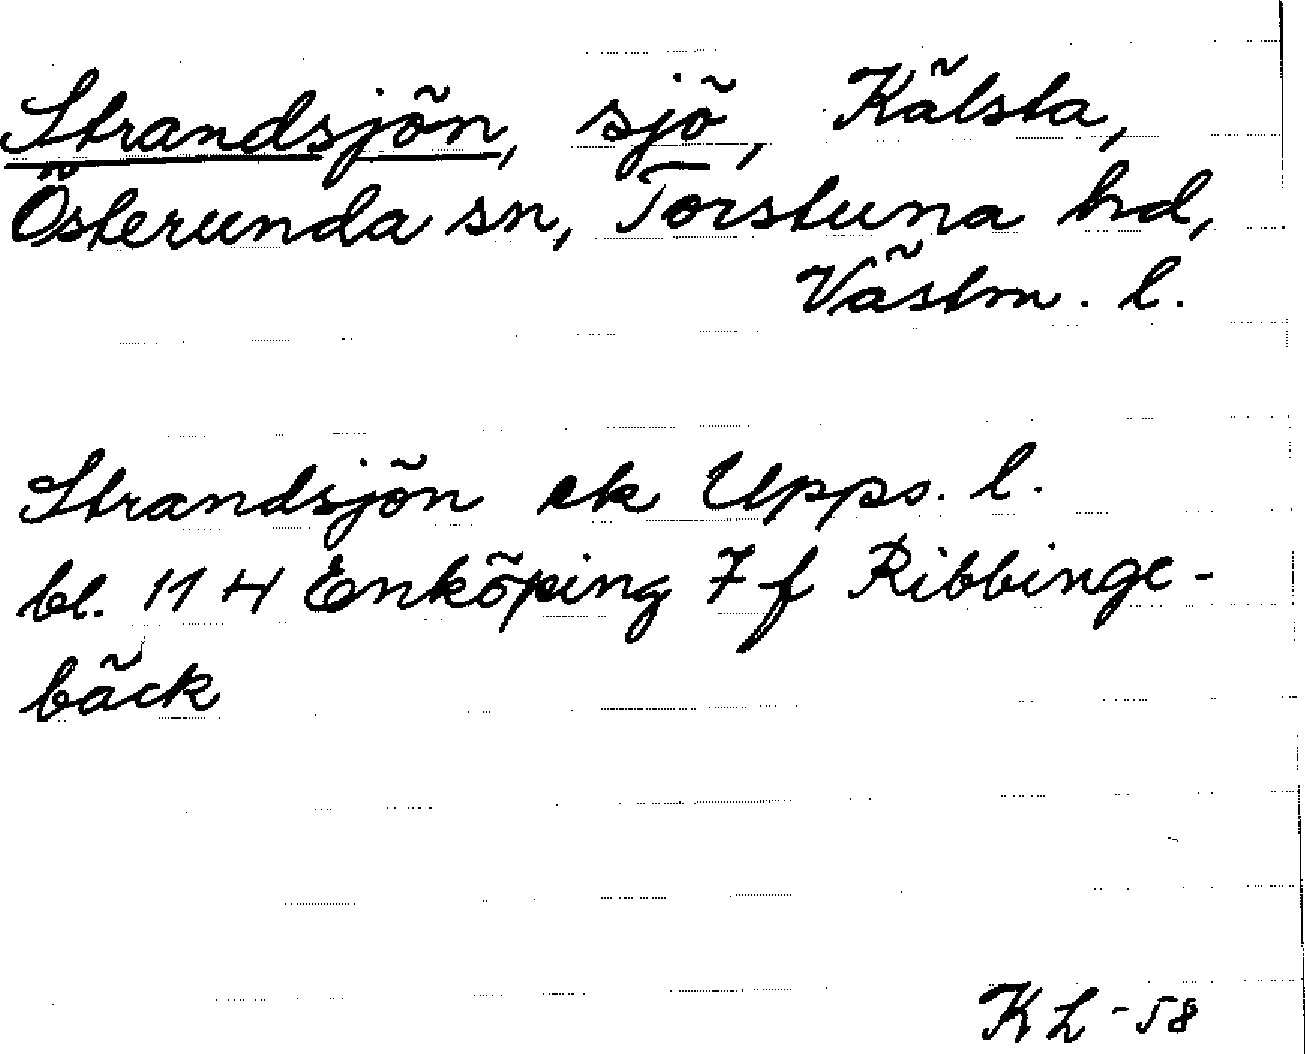 Strandsjön, sjö, Kälsta,
Österunda sn, Torstuna hd,
Västm. l.
Strandsjön ek Upps. l.
bl. 11 H Enköping 7 f Ribbinge-
bäck
KL -58